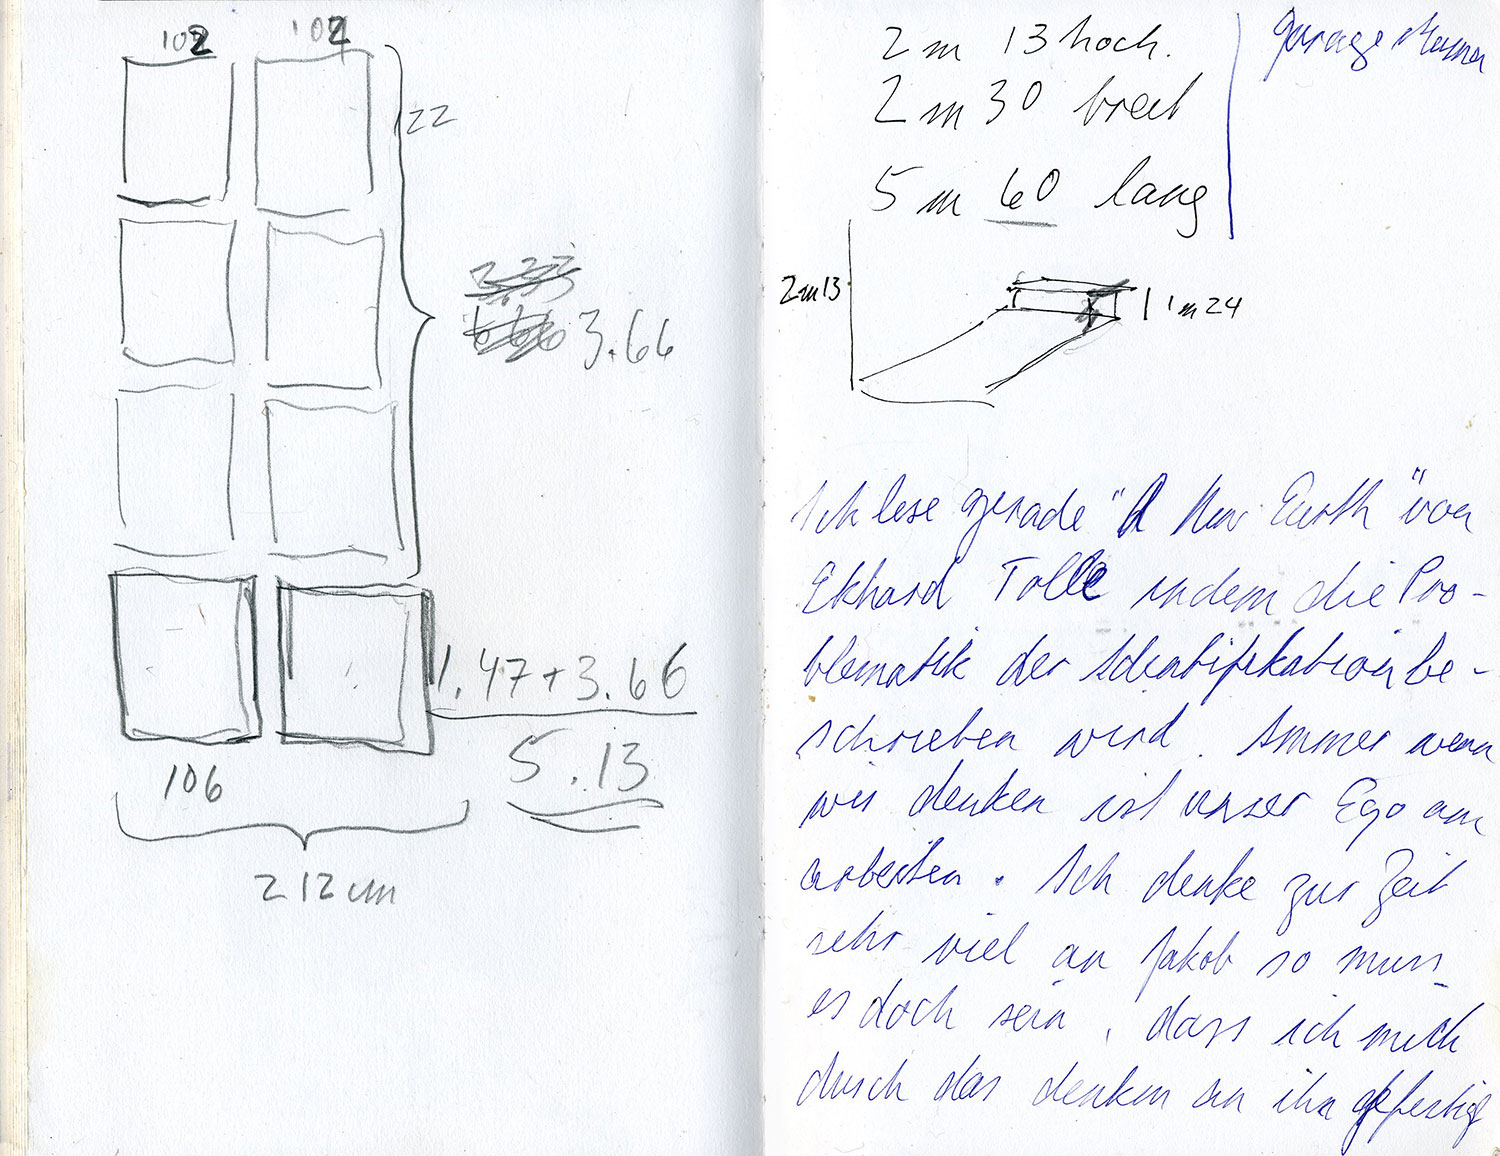 102 102
22
3.66
1.47+3.66
5.13
106
212 cm
2 m 13 hoch.
2 m 30 breit
5 m 60 lang
garage
2m13
1m24
Ich lese gerade "A New Earth" von
Ekhard Tolle indem die Pro-
blematik der Identifikation be-
schrieben wird. Immer wenn
wir denken ist unser Ego am
arbeiten. Ich denke zur Zeit
sehr viel an Jakob so muss
es doch sein, dass ich mich
durch das denken an ihn